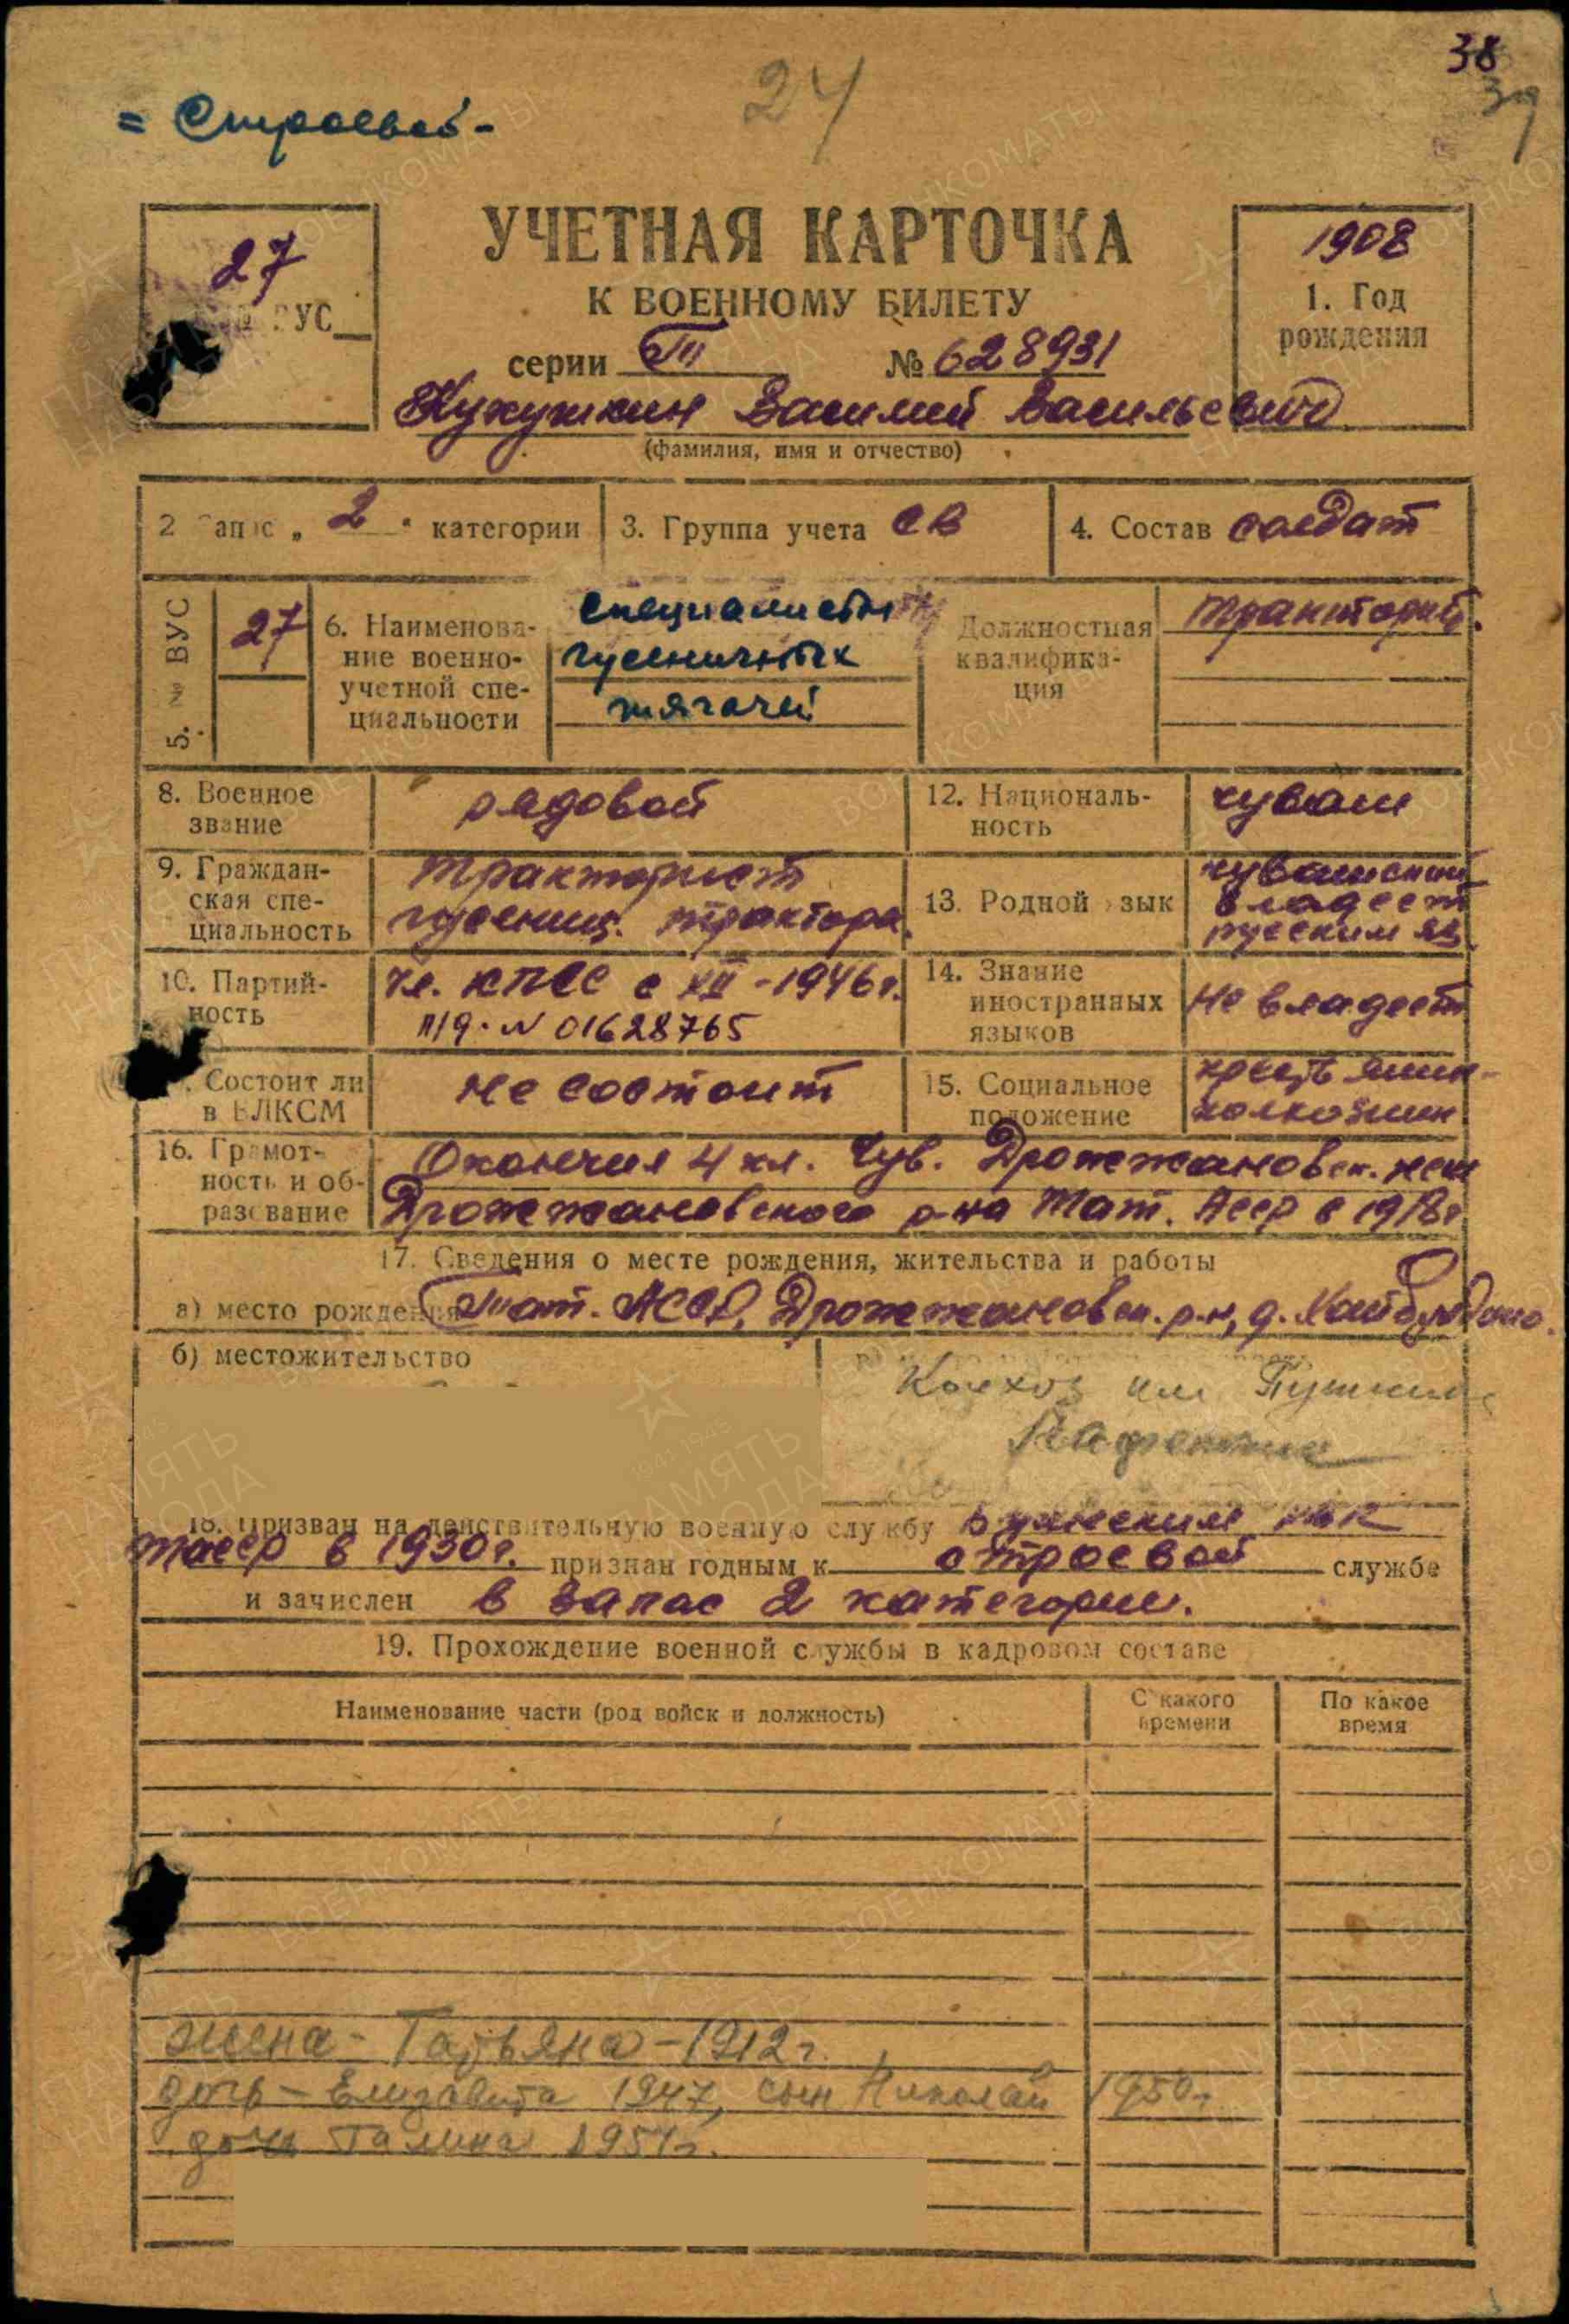 38
24
39
= Строевой -
27
ВУС
УЧЕТНАЯ КАРТОЧКА
К ВОЕННОМУ БИЛЕТУ
серии ТП № 628931
1908
1. Год
рождения
Кукушкин Василий Васильевич
(фамилия, имя и отчество)
2 Запас „ 2 " категории
3. Группа учета СВ
4. Состав солдат
5. № ВУС
27
6. Наименова-
ние военно-
учетной спе-
циальности
специалисты
гусеничных
тягачей
Должностная
квалифика-
ция
тракторист.
8. Военное
звание
рядовой
12. Националь-
ность
чуваш
9. Граждан-
ская спе-
циальность
тракторист
гусениц. трактора
13. Родной язык
чувашский
владеет
русским яз.
10. Партий-
ность
чл. КПСС с XII-1946г.
п/д. N 01628765
14. Знание
иностранных
языков
не владеет
Состоит ли
в ВЛКСМ
не состоит
15. Социальное
положение
крестьянин-
колхозник
16. Грамот-
ность и об-
разование
Окончил 4 кл. Чув. Дрожжановск. НСШ
Дрожжановского р-на Тат. АССР в 1918г
17. Сведения о месте рождения, жительства и работы
а) место рождения Тат. АССР, Дрожжановск. р-н, д.
б) местожительство
Колхоз им Пушкина
18. Призван на действительную военную службу Буинским РВК
ТАССР в 1930г. признан годным к строевой службе
и зачислен в запас 2 категории.
19. Прохождение военной службы в кадровом составе
Наименование части (род войск и должность)
С какого
времени
По какое
время
жена - Татьяна - 1912г.
дочь - Елизавета 1947, сын Николай 1950г.
дочь Галина 1951г.